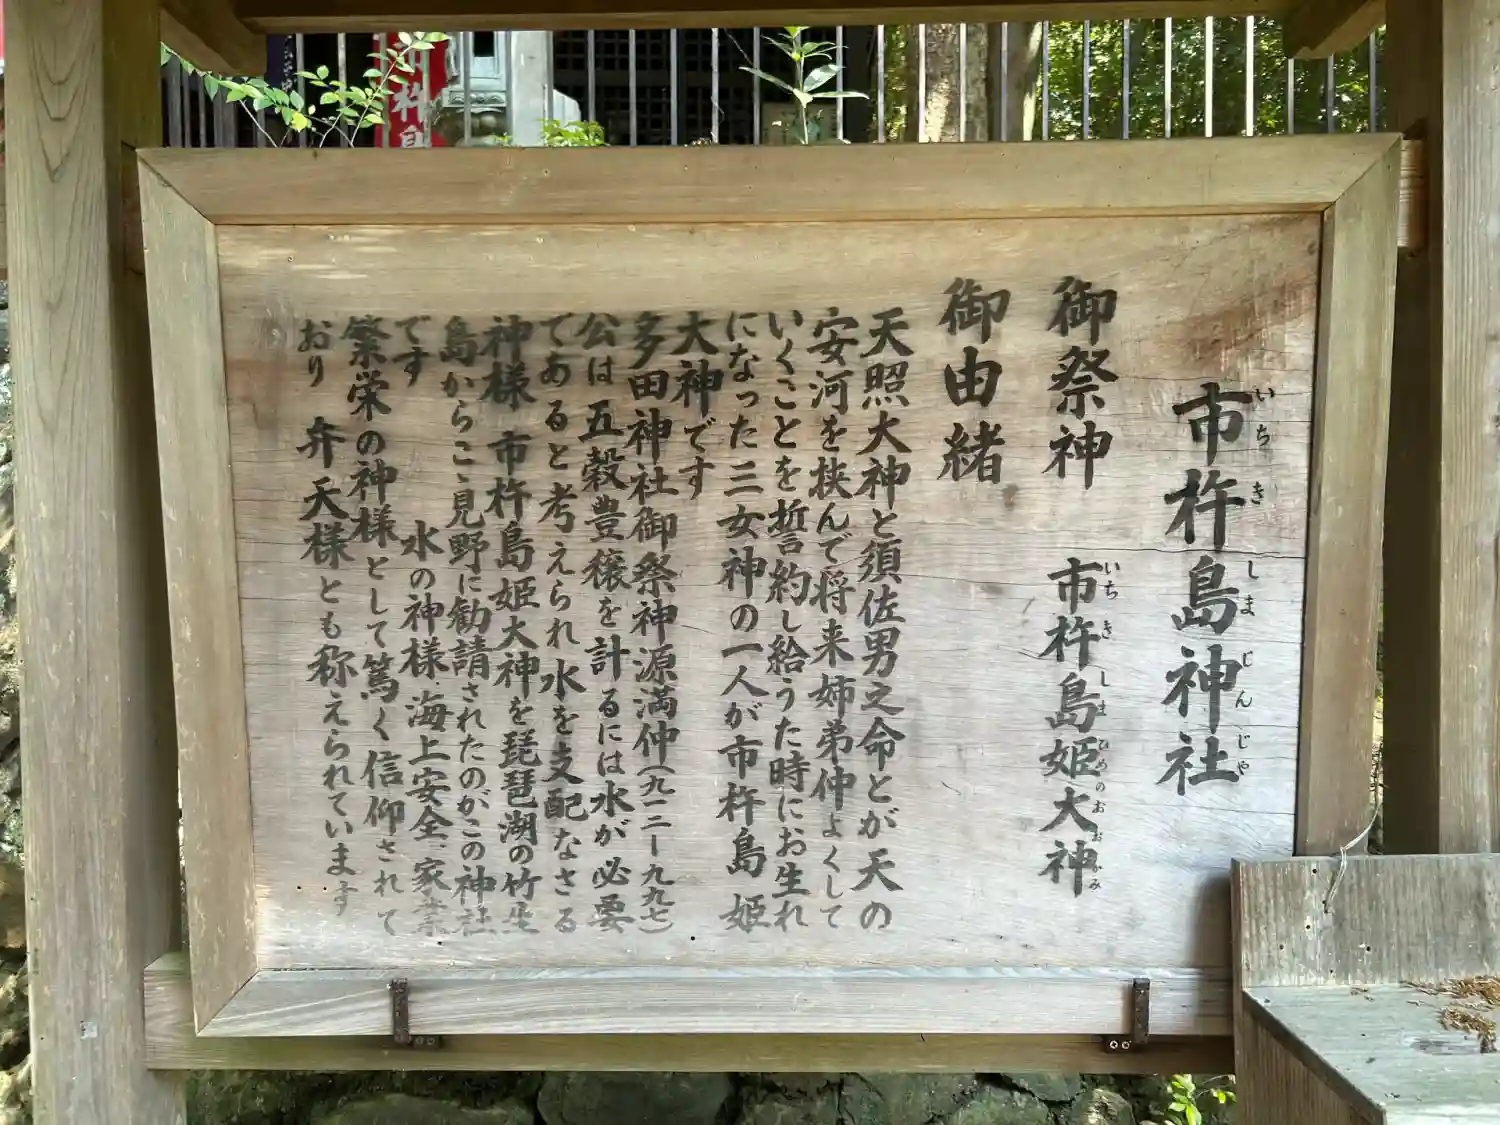 市杵島神社
いちきしまじんじゃ
御祭神 市杵島姫大神
いちきしまひめのおおかみ
御由緒
天照大神と須佐男之命とが天の
安河を挟んで将来姉弟仲よくして
いくことを誓約し給うた時にお生れ
になった三女神の一人が市杵島姫
大神です
多田神社御祭神源満仲(九一二ー九九七)
公は五穀豊穣を計るには水が必要
であると考えられ水を支配なさる
神様 市杵島姫大神を琵琶湖の竹生
島からこゝ見野に勧請されたのがこの神社
です 水の神様、海上安全、家業
繁栄の神様として篤く信仰されて
おり 弁天様とも称えられています